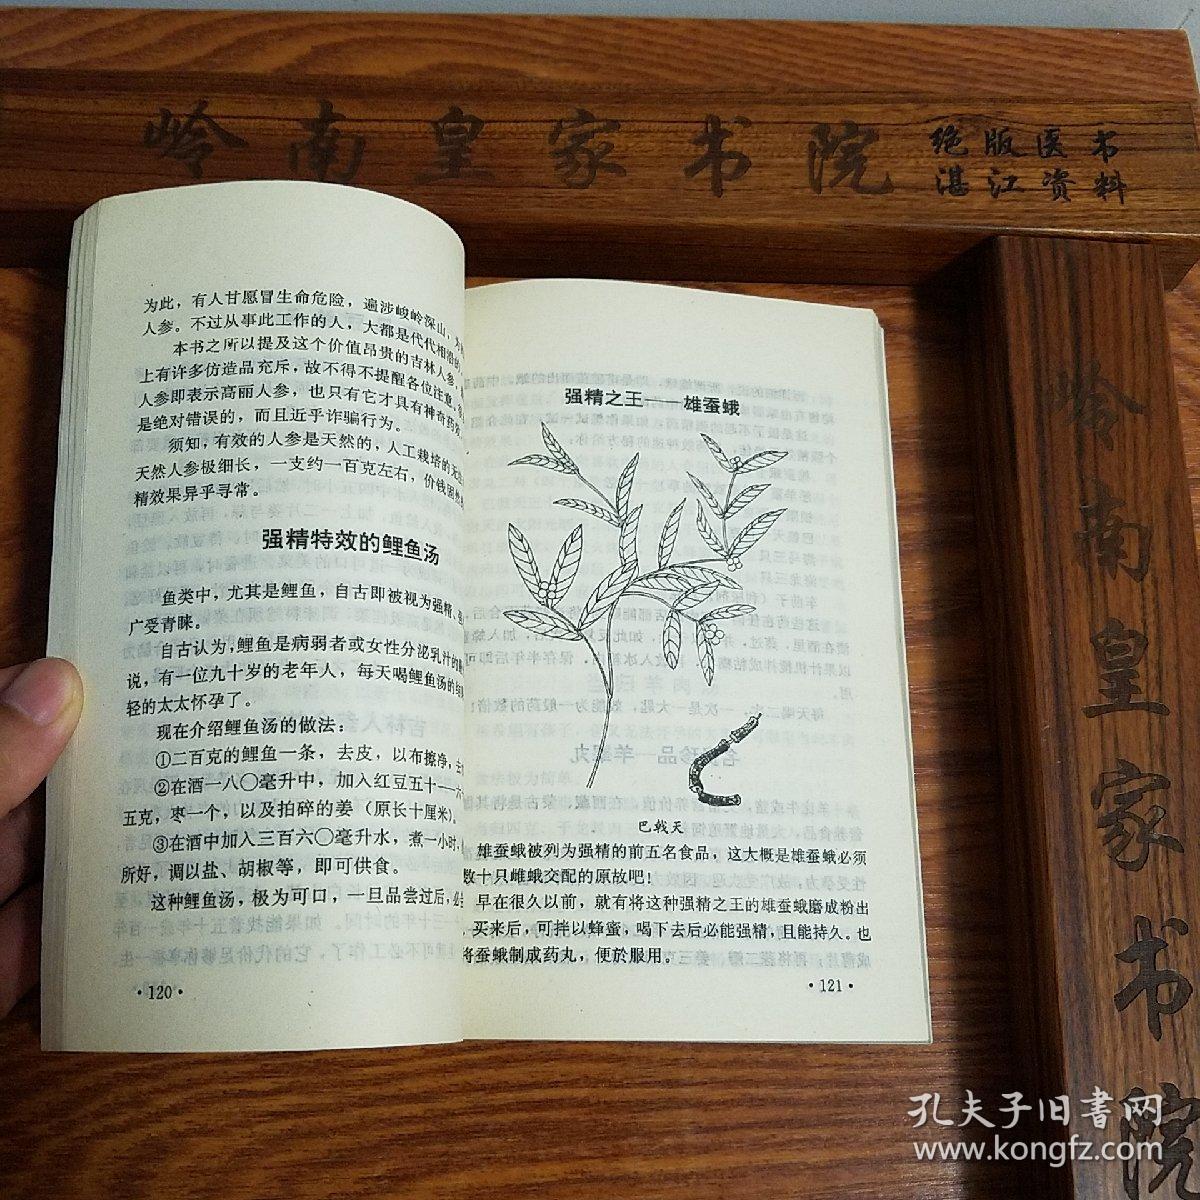 岭南皇家书院
绝版医书
湛江资料
为此，有人甘愿冒生命危险，遍涉峻岭深山，为
人参。不过从事此工作的人，大都是代代相
本书之所以提及这个价值昂贵的吉林人参，
上有许多仿造品充斥，故不得不提醒各位注意，
人参即表示高丽人参，也只有它才具有神奇药效
是绝对错误的，而且近乎诈骗行为。
须知，有效的人参是天然的，人工栽培的无
天然人参极细长，一支约一百克左右，价钱固然
精效果异乎寻常。
强精特效的鲤鱼汤
鱼类中，尤其是鲤鱼，自古即被视为强精、
广受青睐。
自古认为，鲤鱼是病弱者或女性分泌乳汁的
说，有一位九十岁的老年人，每天喝鲤鱼汤的
轻的太太怀孕了。
现在介绍鲤鱼汤的做法：
①二百克的鲤鱼一条，去皮，以布擦净，去
②在酒一八〇毫升中，加入红豆五十—六
五克，枣一个，以及拍碎的姜（原长十厘米）。
③在酒中加入三百六〇毫升水，煮一小时，
所好，调以盐、胡椒等，即可供食。
这种鲤鱼汤，极为可口，一旦品尝过后，必
·120·
强精之王——雄蚕蛾
巴戟天
雄蚕蛾被列为强精的前五名食品，这大概是雄蚕蛾必须
数十只雌蛾交配的原故吧！
早在很久以前，就有将这种强精之王的雄蚕蛾磨成粉出
，买来后，可拌以蜂蜜，喝下去后必能强精，且能持久。也
将蚕蛾制成药丸，便於服用。
·121·
岭南皇家书院
孔夫子旧书网
www.kongfz.com